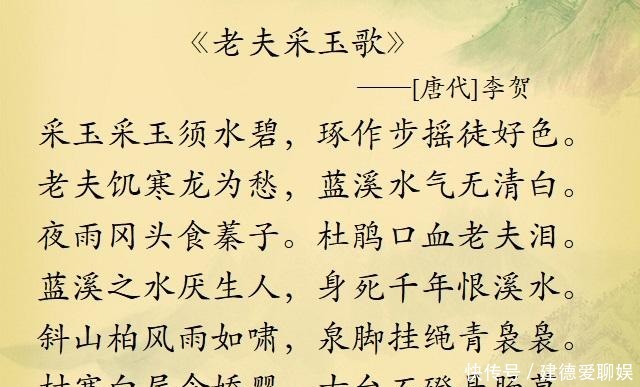 《老夫采玉歌》
——[唐代]李贺
采玉采玉须水碧，琢作步摇徒好色。
老夫饥寒龙为愁，蓝溪水气无清白。
夜雨冈头食蓁子。杜鹃口血老夫泪。
蓝溪之水厌生人，身死千年恨溪水。
斜山柏风雨如啸，泉脚挂绳青袅袅。
快传号/建德爱聊娱